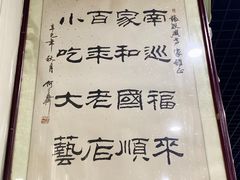 南巡福來
家和國順
百年老店
小吃大藝
辛巳年秋月